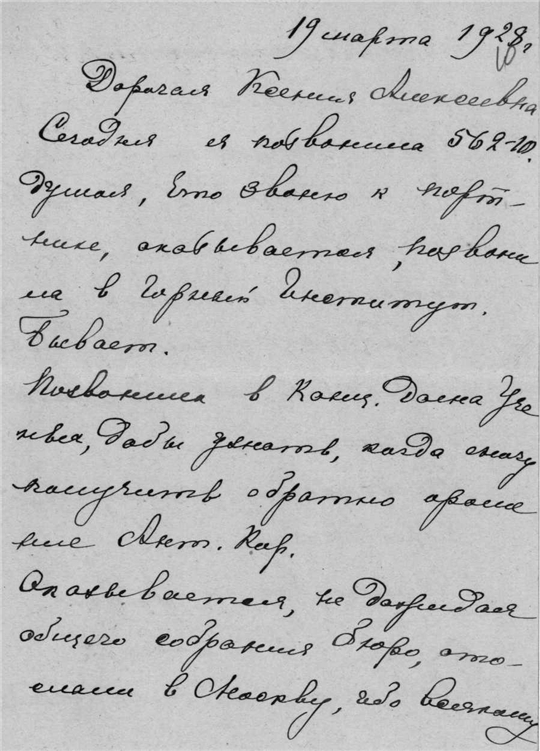 19 марта 1928 г
Дорогая Ксения Алексеевна
Сегодня я позвонила 562-10.
Думая, что звоню к порт-
нихе, оказывается, позвони
ла в Горный Институт.
Бывает.
Позвонила в Канц. Дома Уче
ных, дабы узнать, когда смогу
получить обратно
Ант. Кар.
Оказывается, не дожидая
общего собрания бюро, ото-
слали в Москву, ибо всякому